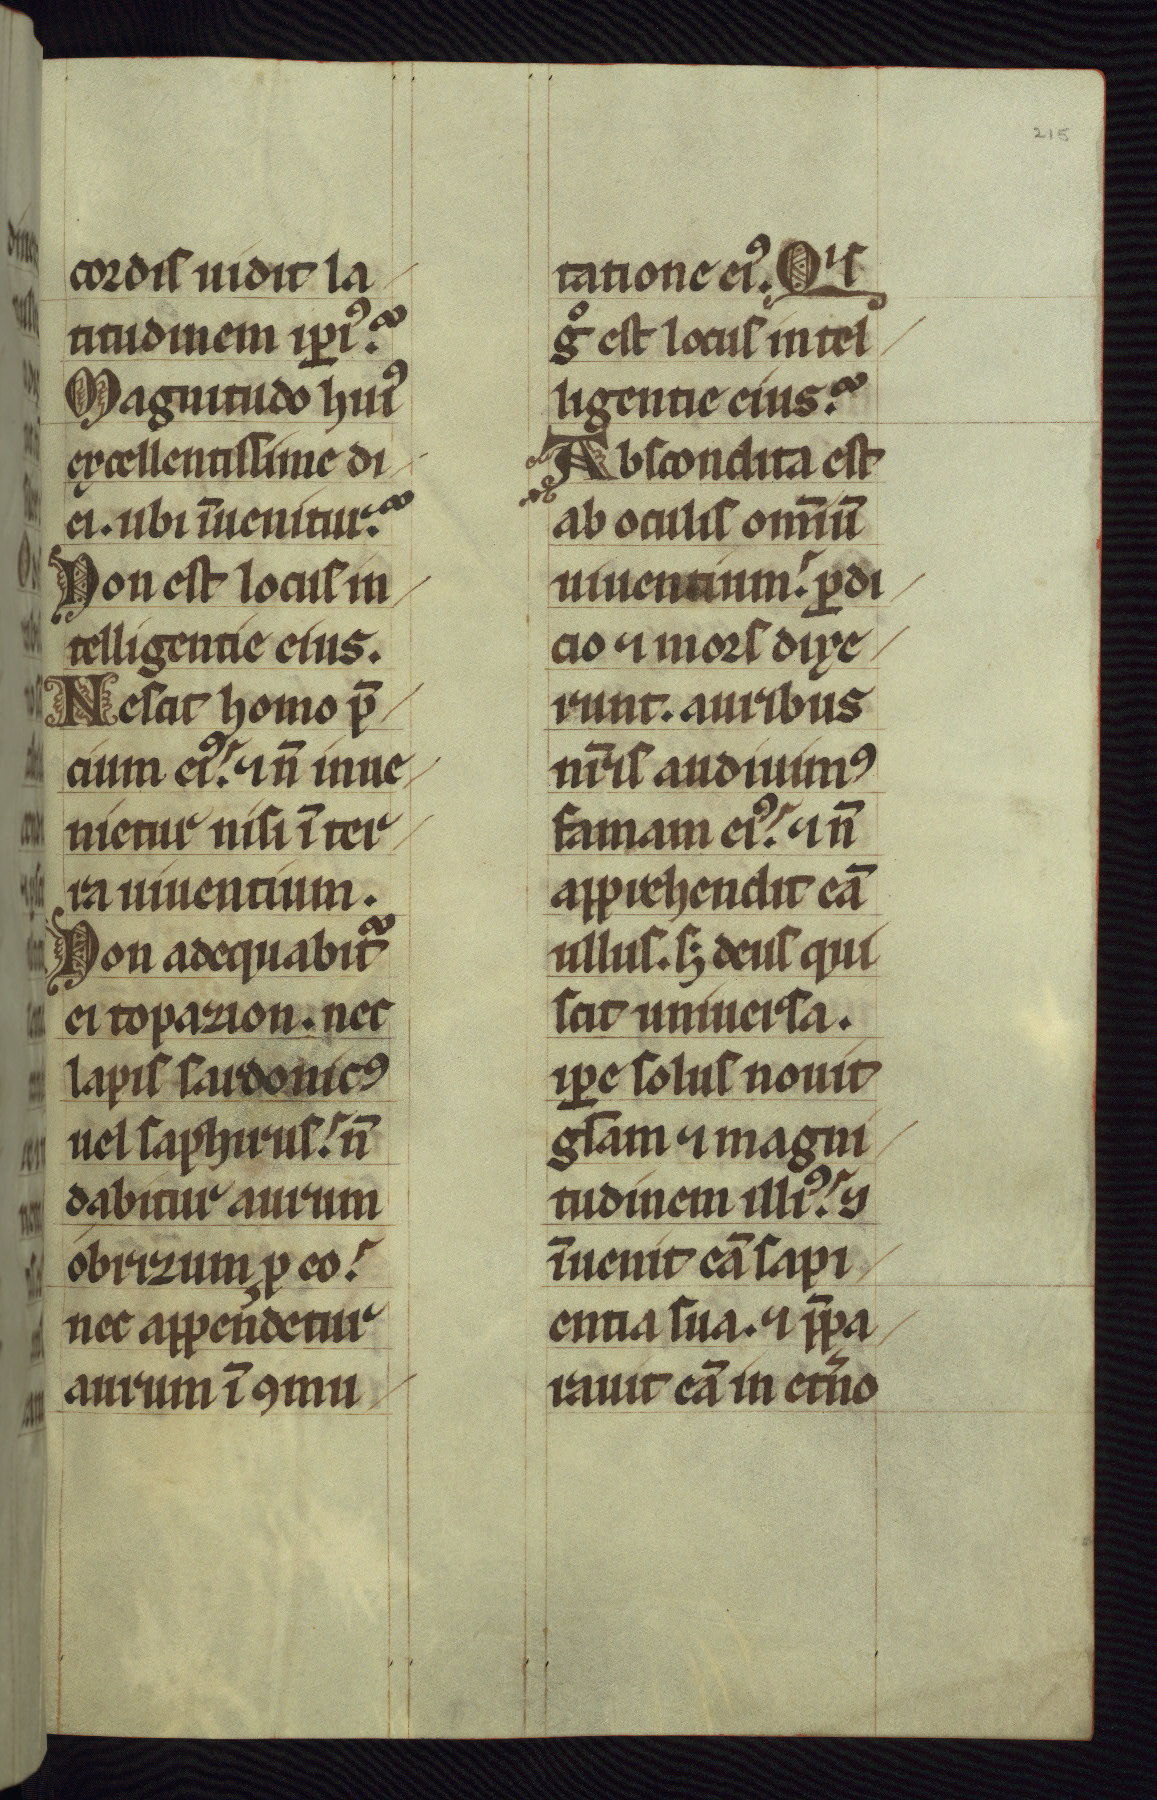 215
cordis uidit la
titudinem ip̲i⁹?
Magnitudo hui⁹
excellentissime di
ei. ubi īuenitur?
Non est locus in
telligentie eius.
Nescit homo p̄
cium ei⁹: ⁊ n̄ inue
nietur nisi ī ter
ra uiuentium.
Non adequabit᷑
ei topazion. nec
lapis sardonic⁹
uel saphirus: n̄
dabitur aurum
obrizum ꝓ eo:
nec appendetur
aurum ī ꝯmu
tatione ei⁹. Qis
gͦ est locus intel
ligentie eius?
Abscondita est
ab oculis om̄iū
uiuentium: ꝑdi
cio ⁊ mors dixe
runt. auribus
nr̄is audiuim⁹
famam ei⁹: ⁊ n̄
apprehendit eā
ullus. sꝫ deus qui
scit uniuersa.
ip̲e solus nouit
gl̄am ⁊ magni
tudinem illi⁹: ⁊
īuenit eā sapi
entia sua. ⁊ p̄pa
rauit eā in et̄no